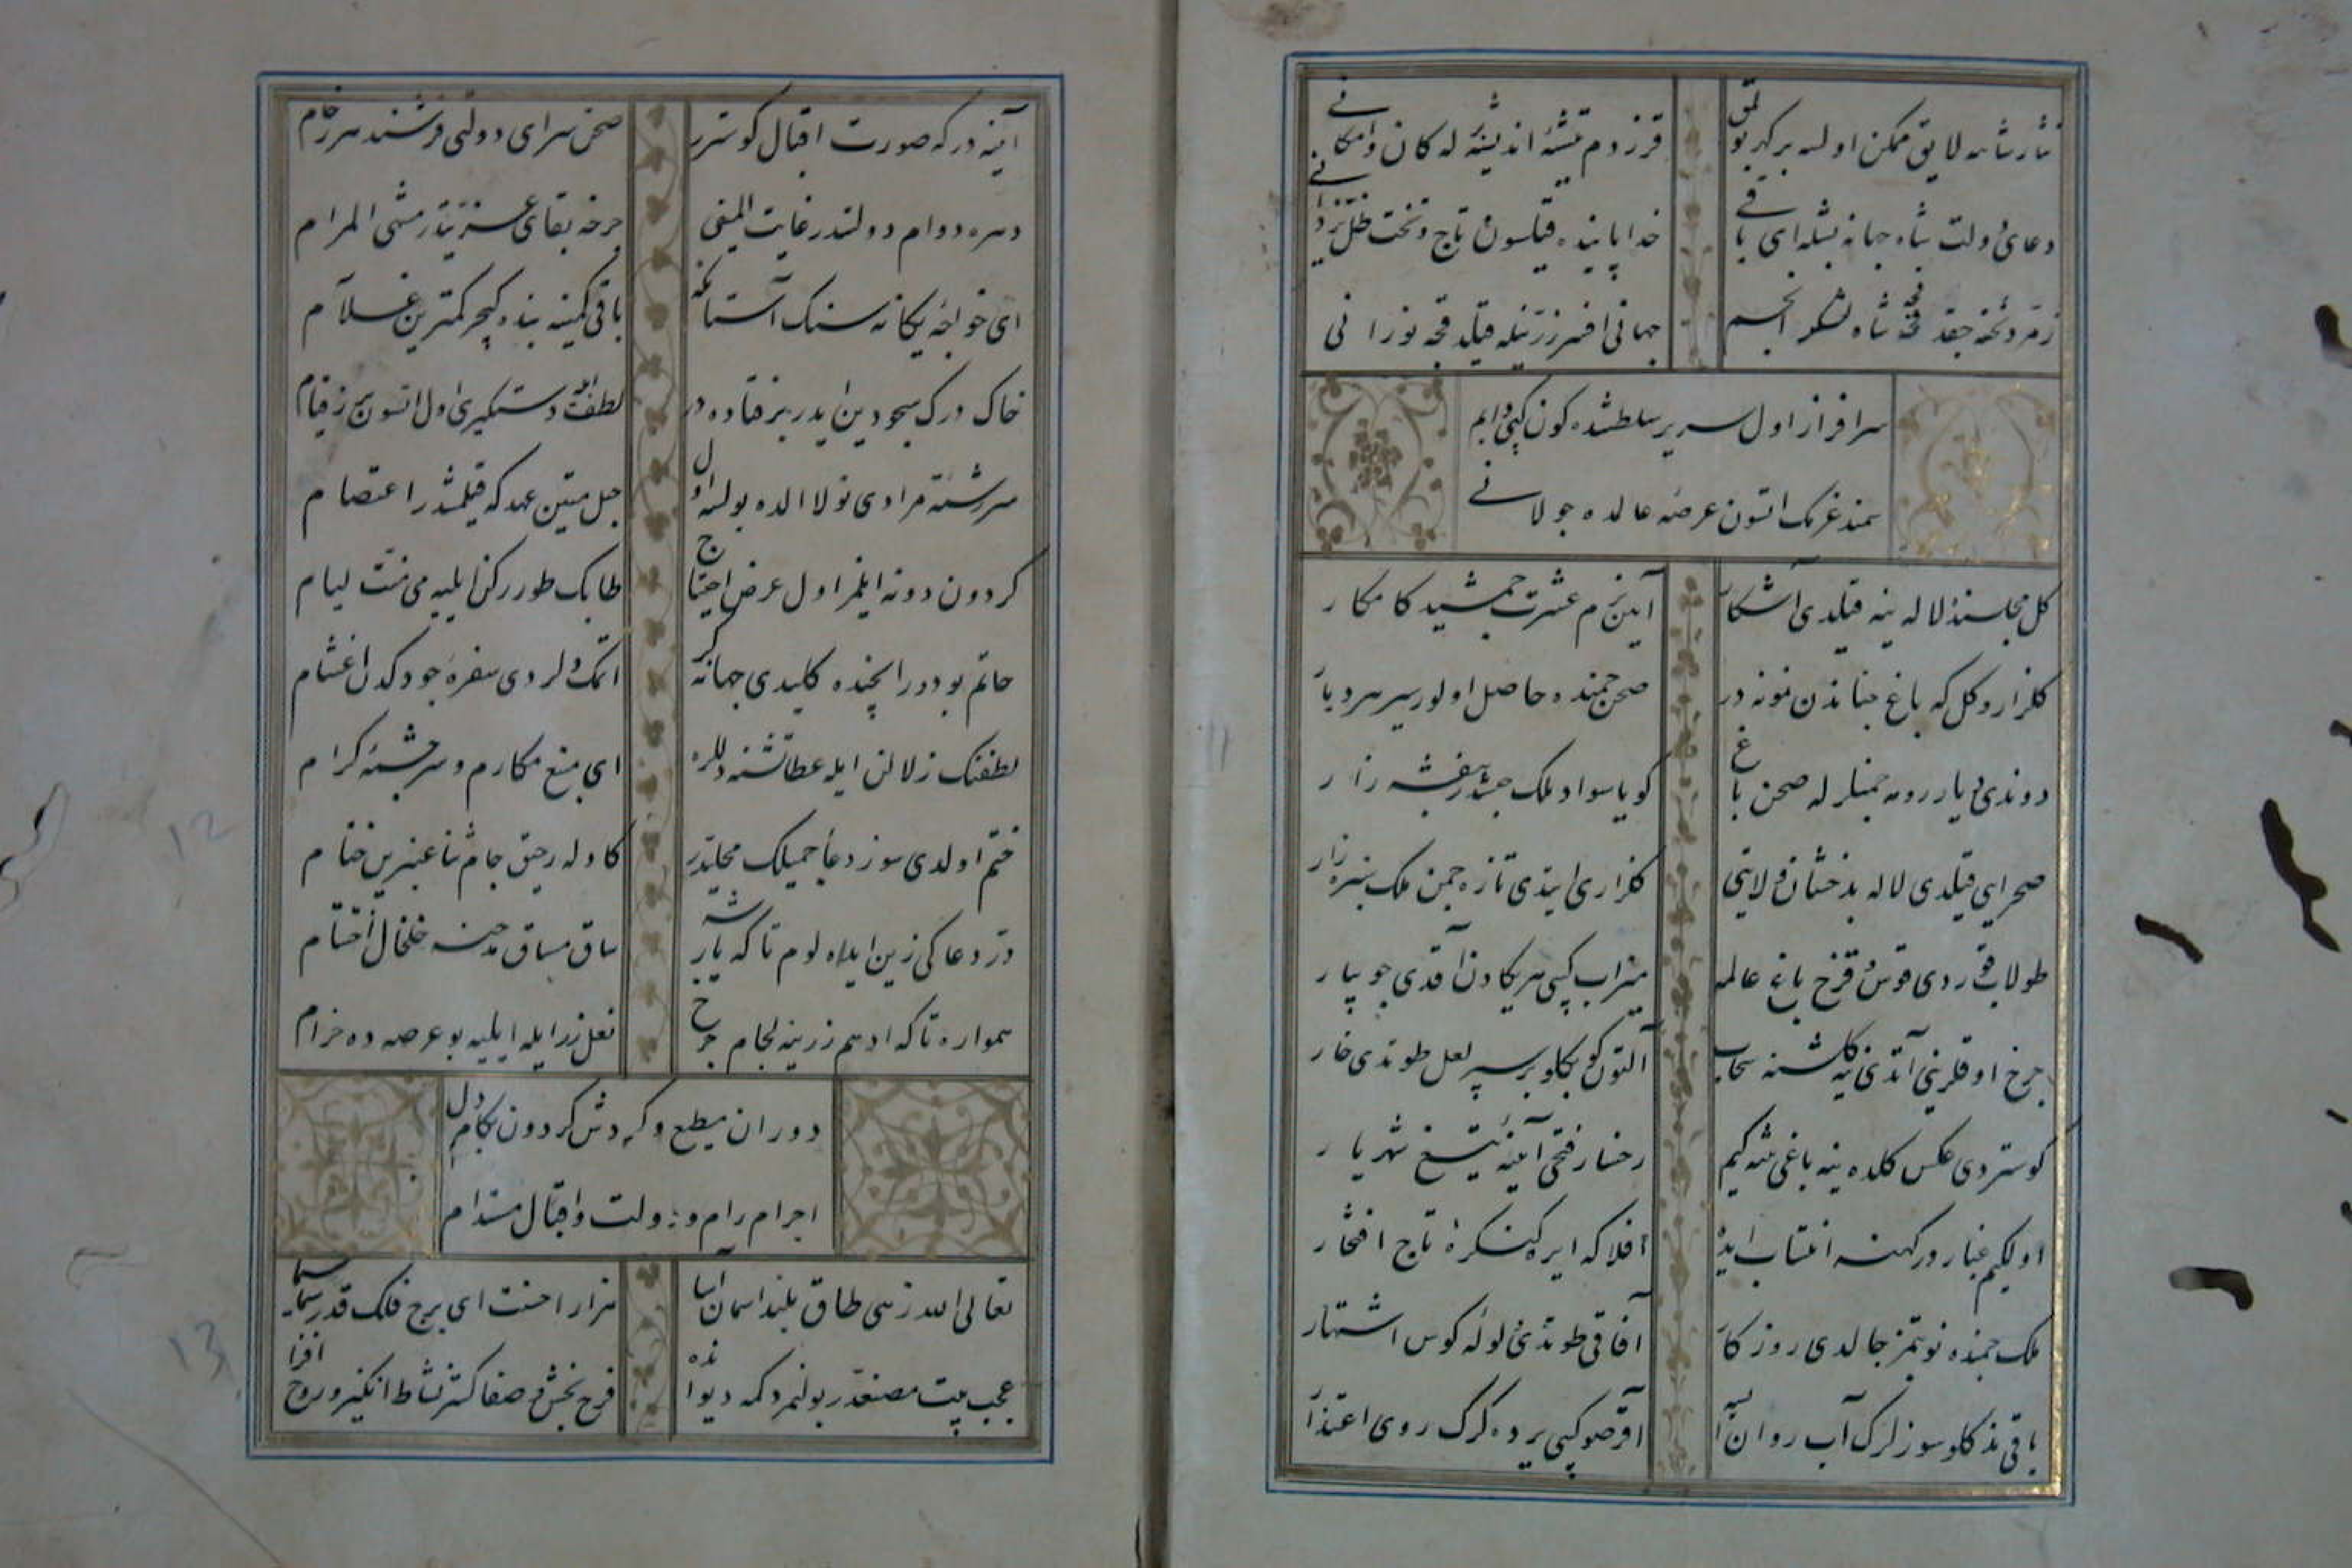 نثار شانه لایق ممکن اولسه بر کهر بولمق
قزردم تیشهٔ اندیشه له کان و امکانی
دعای دولت شاه جهانه بشله ای باقی
خدا پاینده قیلسون تاج و تخت ظل یزدانی
زمرد تخته چقدقجه شاه لشکر انجم
جهانی افسر زرینله قیلدقجه نورانی
سرافراز اول سریر سلطنتده کون کپی دایم
سمند عزمک اتسون عرصهٔ عالمده جولانی
کل مجلسنده لاله ینه قیلدی آشکار
آیین بزم عشرت جمشید کامکار
کلزار و کل که باغ جناندن نمونه در
صحن چمنده حاصل اولور سیر هر دیار
دوندی دیار رومه چمنلر له صحن باغ
کویا سواد ملک حبشدر بنفشه زار
صحرایی قیلدی لاله بدخشان ولایتی
کلزاری ایتدی تازه چمن ملک سبزه زار
طولاب قوردی قوس قزح باغ عالمه
میزاب کپی هر یکادن آقدی جویبار
چرخ اوقلرینی آتدی ینه کلشنه سحاب
آلتون کوبکلو بر سپر لعل طوتدی خار
کوستردی عکس کلده ینه باغی شه کیم
رخسار فتحی آینهٔ تیغ شهریار
اولکیم غبار درکهنه انتساب ایدر
افلاکه ایره کنکرهٔ تاج افتخار
ملک چمنده نوبتمز چالدی روزکار
آفاقی طوتدی غلغلهٔ کوس اشتهار
باقی بنم کلو سوزلرک آب روان ایسه
آقر صو کپی یرده کرک روی اعتذار
آیینه در که صورت اقبال کوستر
صحن سرای دولتی فرشنده هر رخام
دهره دوام دولتدر غایت المنی
چرخه بقای عزتیدر منتهی المرام
ای خواجهٔ یکانه سنک آستانکه
باقی کمینه بنده کپجر کمترین غلام
خاک درک سجودین ایدر بر فتاده در
لطفک انه دستکیری اول اتسون بر از قیام
سررشتهٔ مرادی نولا الده بولسه اول
حبل متین عهدکه قیلمشدر اعتصام
کردون دونه ایلمز اول عرض احتیاج
طابک طوررکن ایلیه می منت لیام
حاتم بو دور ایچنده کلیدی جهانه کر
اتمک دلردی سفرهٔ جودکدن اغتنام
لطفنک زلالن ایله عطا تشنه دللره
ای منبع مکارم و سرچشمهٔ کرام
ختم اولدی سوز دعا جمیلک محلیدر
کاوله رحیق جام ثنا عنبرین ختام
در دعا کی زین ایده لوم تا که یاراشه
ساق مساق مدحنه خلخال اختتام
همواره تا که ادهم زرینه لجام چرخ
نعل زر ایله ایلیه بو عرصه ده خرام
دوران مطیع و کردش کردون بکام دل
اجرام رام و دولت و اقبال مستدام
تعالی الله زهی طاق بلند اسمان آسا
هزار احسنت ای برج فلک قدر سما سیما
عجب بیت مصنعدر بولنمز دکمه دیوانده
فرح بخش و صفا کستر نشاط انکیز و روح افزا